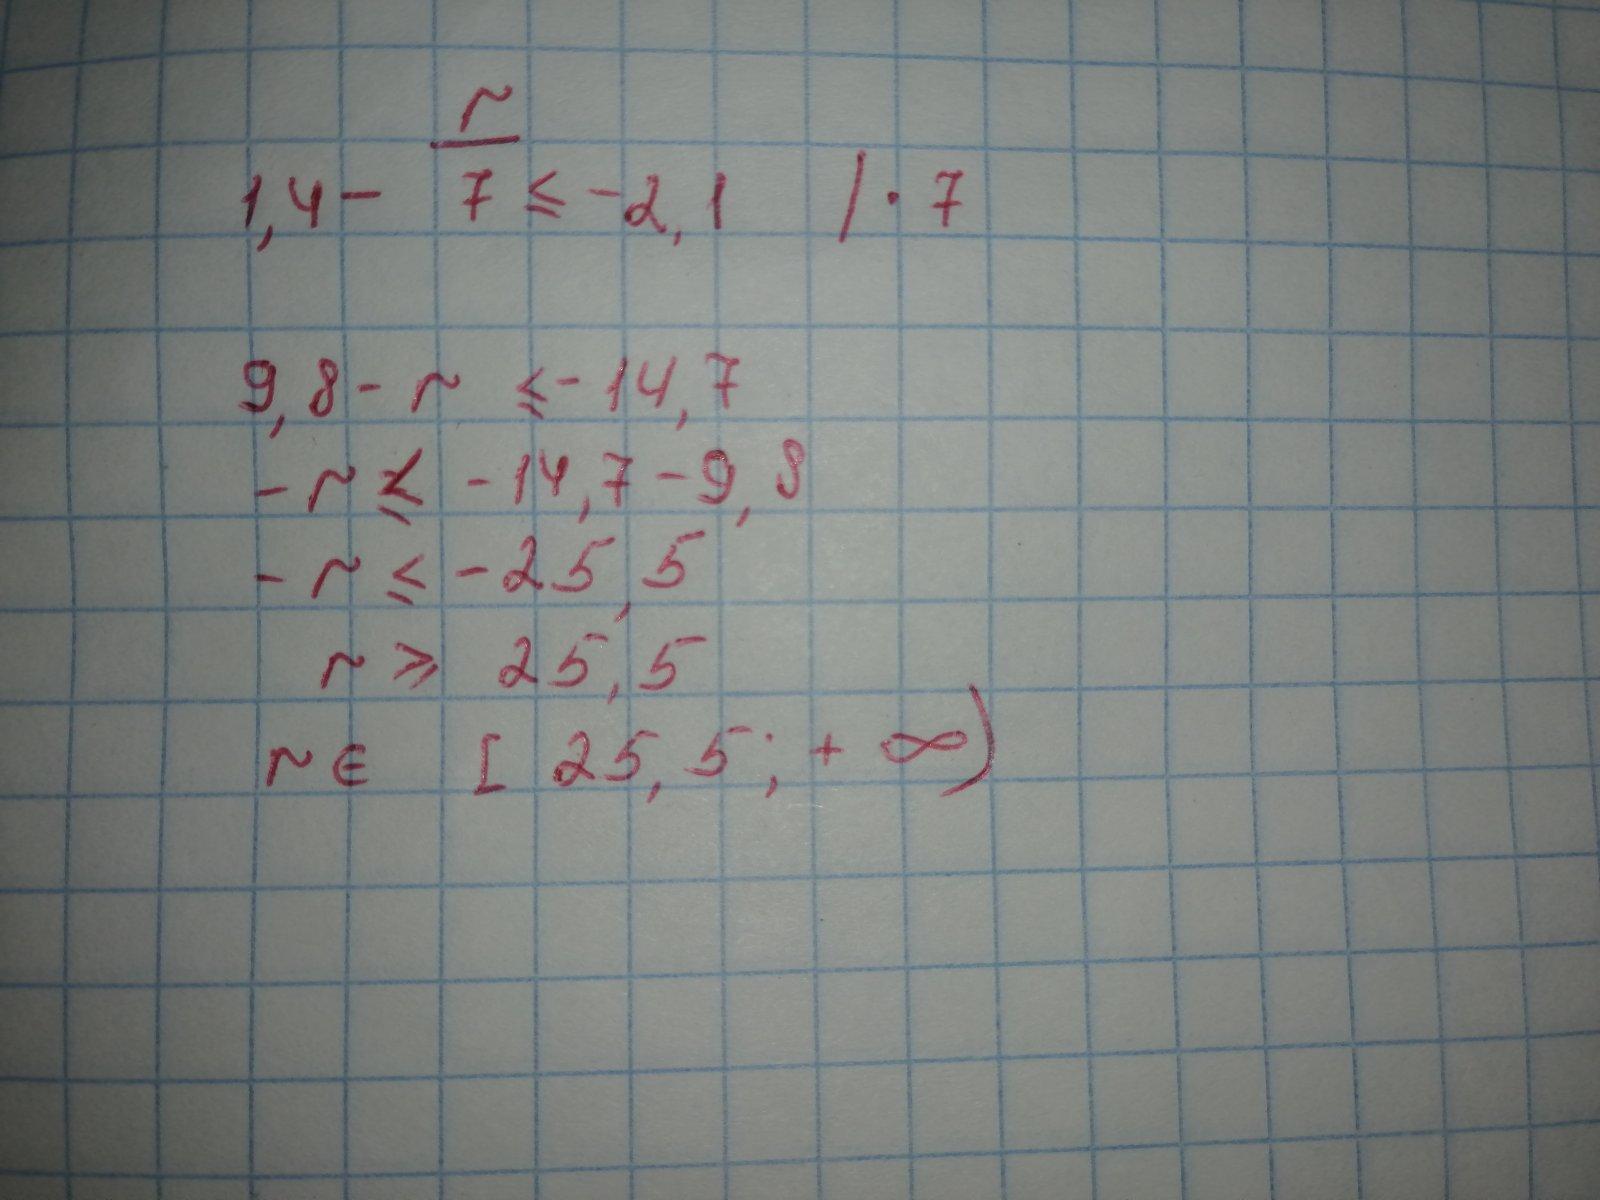 1,4 - r/7 ⩽ -2,1 / · 7
9,8 - r ⩽ -14,7
-r ⩽ -14,7 - 9,8
-r ⩽ -25,5
r ⩾ 25,5
r ∈ [25,5; +∞)